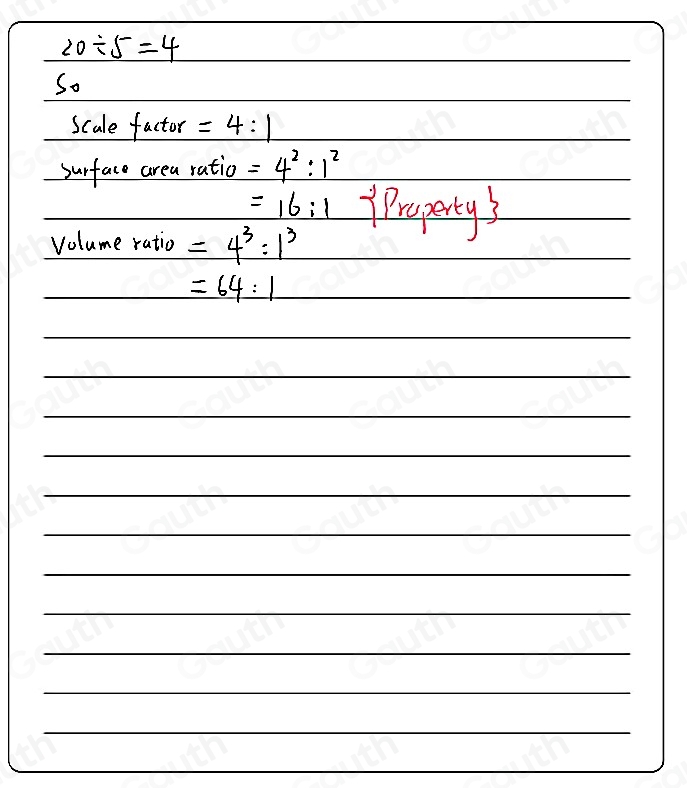 20÷5=4
So
Scale factor = 4:1
surface area ratio = 4²:1²
= 16:1 {Property}
Volume ratio = 4³:1³
= 64:1
Gauth